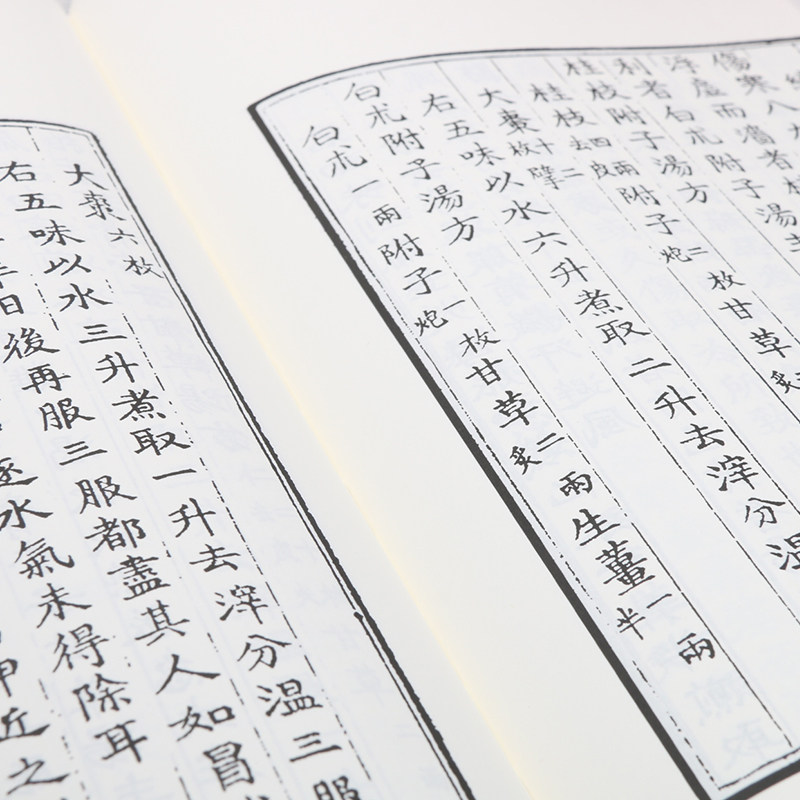 傷寒八
浮虛而濇者桂
利者白朮附子湯主
桂枝附子湯方
桂枝四兩去皮附子二枚炮甘草炙
大棗十二枚擘
右五味以水六升煮取二升去滓分温
白朮附子湯方
白朮一兩附子一枚炮甘草二兩炙生薑一兩半
大棗六枚
右五味以水三升煮取一升去滓分温三服
日後再服三服都盡其人如冒
逐水氣未得除耳
近之